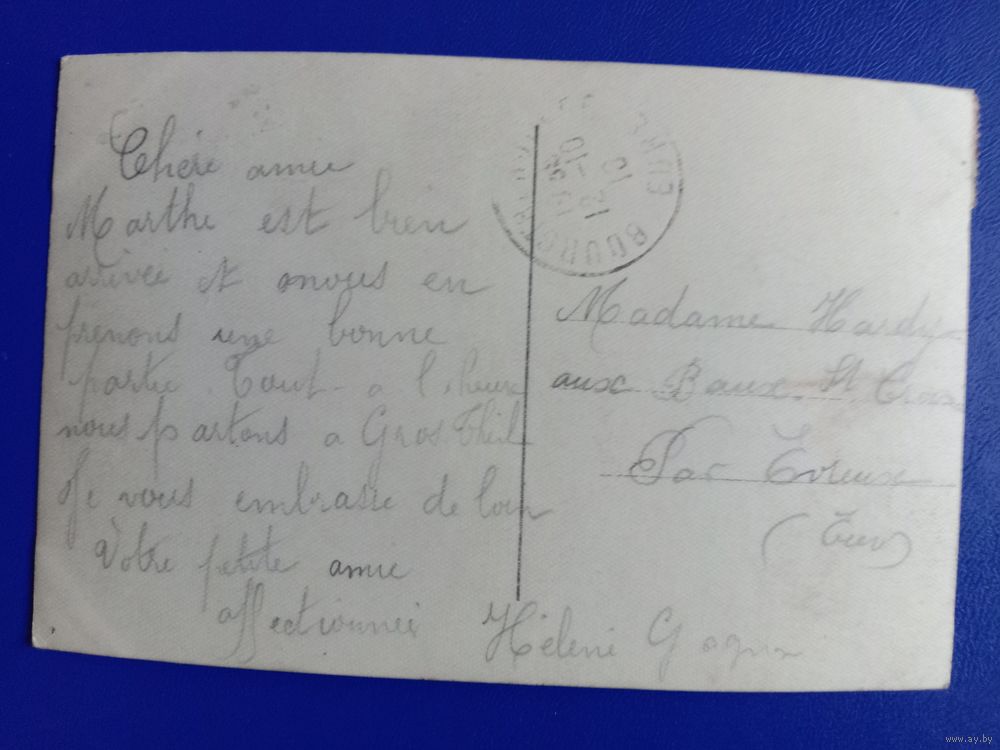 Chère amie
Marthe est bien
arrivée et nous en
prenons une bonne
partie Tout-a l'heure
nous partons a Gros Theil
Je vous embrasse de loin
Votre petite amie
affectionnée Hélène
Madame Hardy
aux Baux St Croix
Par Evreux
(Eure)
EURE
www.ay.by